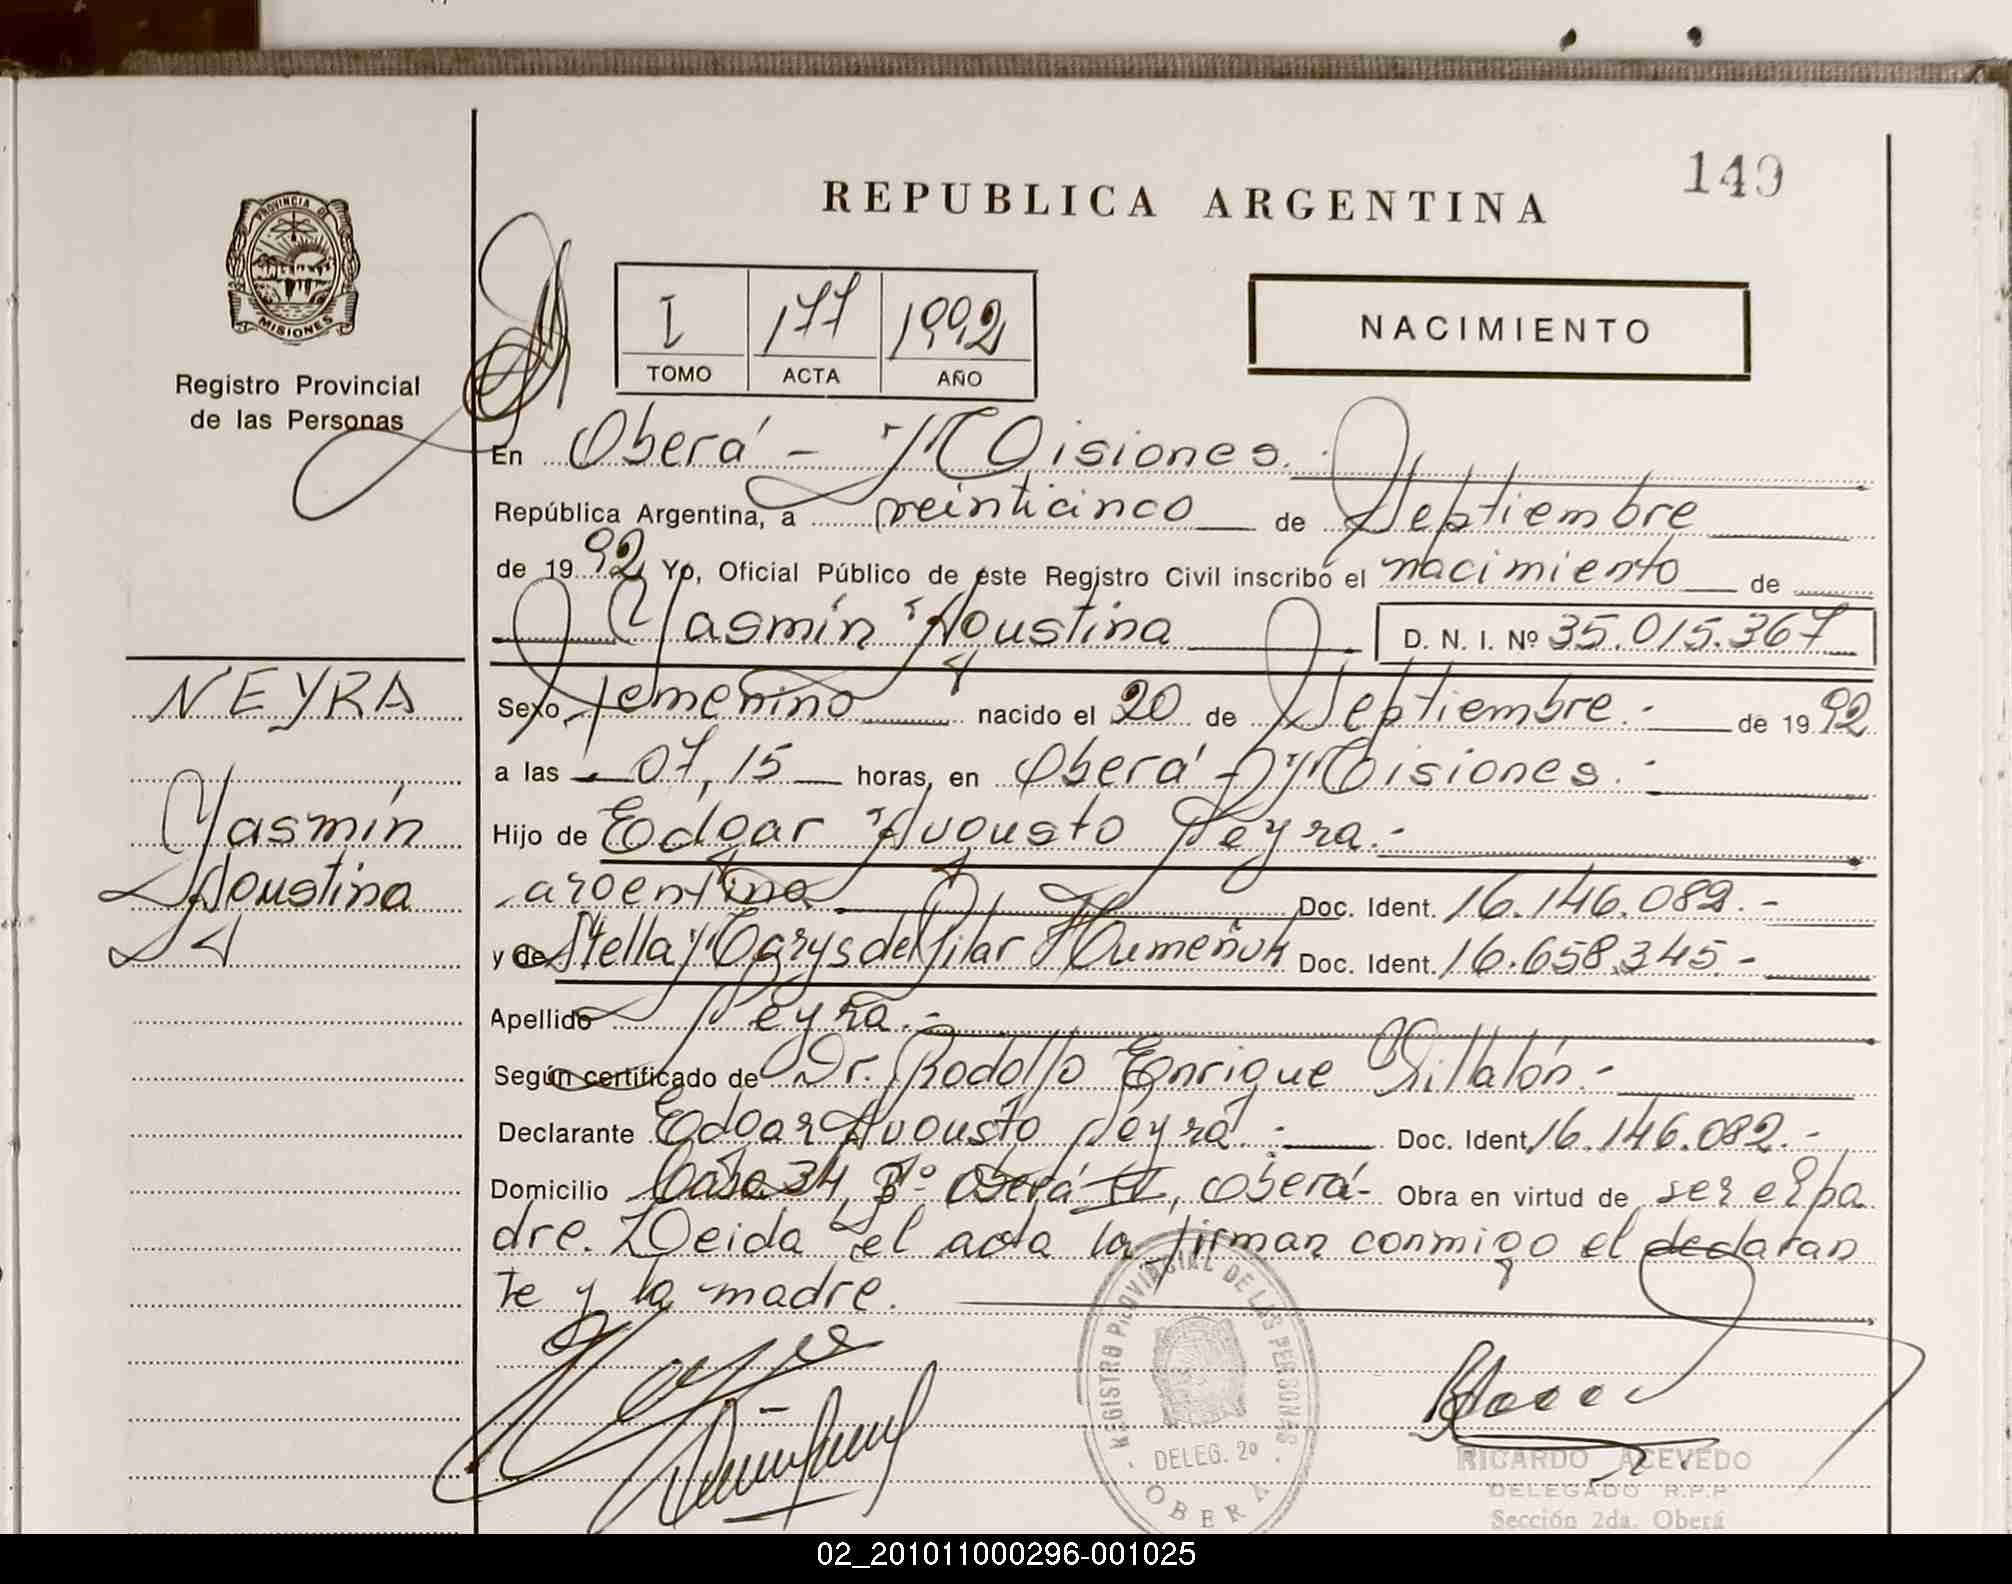 149
REPUBLICA ARGENTINA
PROVINCIA DE
MISIONES
Registro Provincial
de las Personas
I 177 1992
TOMO ACTA AÑO
NACIMIENTO
En Oberá - Misiones.
República Argentina, a veinticinco de Septiembre
de 1992 Yo, Oficial Público de este Registro Civil inscribo el nacimiento de
Yasmín Agustina D. N. I. Nº 35.015.367
NEYRA
Yasmín
Agustina
Sexo femenino nacido el 20 de Septiembre.- de 1992
a las 07,15 horas, en Oberá - Misiones.-
Hijo de Edgar Augusto Neyra.-
argentino Doc. Ident. 16.146.082.-
y de Stella Marys del Pilar Humeñuk Doc. Ident. 16.658.345.-
Apellido Neyra.-
Según certificado de Dr. Rodolfo Enrique Villalón.-
Declarante Edgar Augusto Neyra.- Doc. Ident. 16.146.082.-
Domicilio Casa 34, Bº Oberá II, Oberá- Obra en virtud de ser el pa
dre. Leida el acta la firman conmigo el declaran
te y la madre.
REGISTRO PROVINCIAL DE LAS PERSONAS
DELEG. 2º
OBERA
RICARDO ACEVEDO
DELEGADO R.P.P
Sección 2da. Oberá
02_201011000296-001025